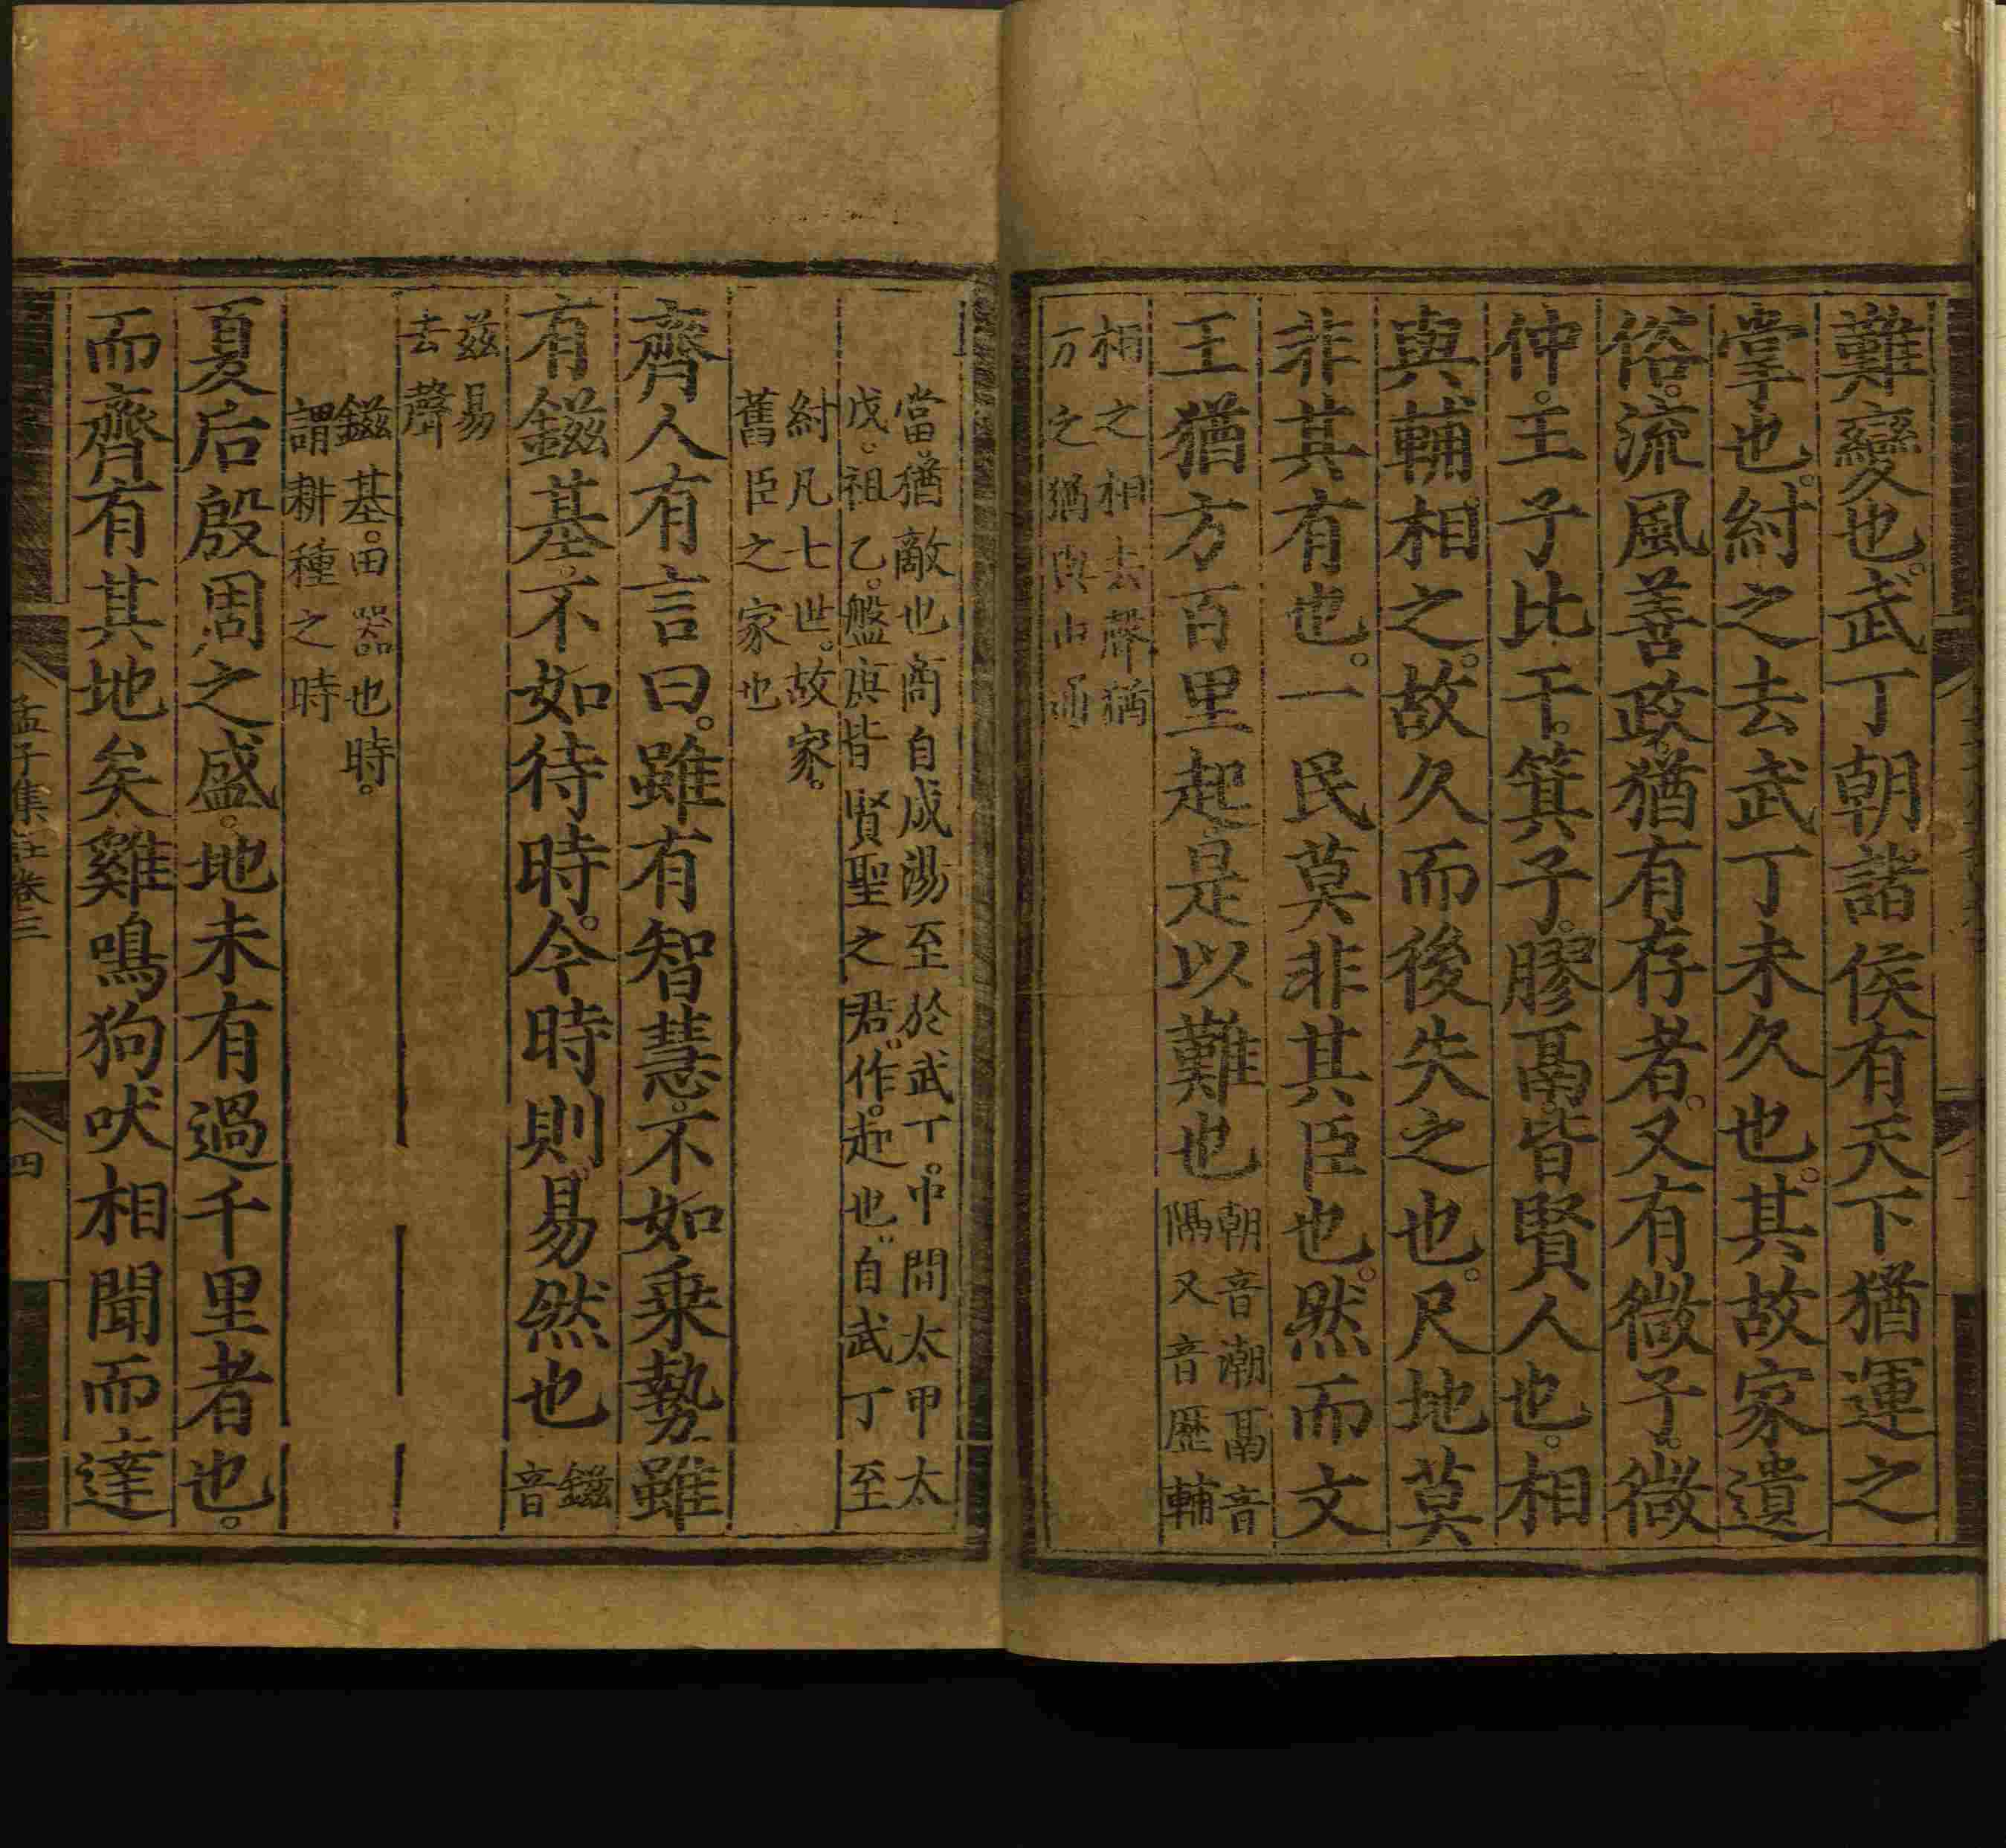 難變也。武丁朝諸侯有天下猶運之
掌也。紂之去武丁未久也。其故家遺
俗。流風善政。猶有存者。又有微子。微
仲。王子比干。箕子。膠鬲。皆賢人也。相
與輔相之。故久而後失之也。尺地莫
非其有也。一民莫非其臣也。然而文
王猶方百里起是以難也
朝音潮鬲音
隔又音歷輔
相之相去聲猶
方之猶與由通
當猶敵也商自成湯至於武丁。中間太甲太
戊。祖乙。盤庚皆賢聖之君。作。起也。自武丁至
紂凡七世。故家。
舊臣之家也
齊人有言曰。雖有智慧。不如乘勢。雖
有鎡基。不如待時。今時則易然也
鎡
音
茲易
去聲
鎡基。田器也時。
謂耕種之時
夏后殷周之盛。地未有過千里者也。
而齊有其地矣雞鳴狗吠相聞而達
孟子集註卷三
四